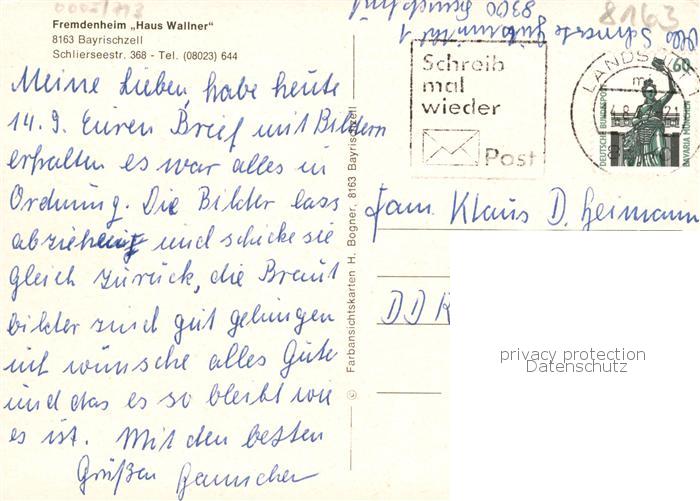 Fremdenheim „Haus Wallner“
8163 Bayrischzell
Schlierseestr. 368 - Tel. (08023) 644
Meine Lieben, habe heute
14. 9. Euren Brief mit Bildern
erhalten es war alles in
Ordnung. Die Bilder lass
abziehen und schicke sie
gleich zurück, die Braut
bilder sind gut gelungen
ich wünsche alles Gute
und das es so bleibt wie
es ist. Mit den besten
Grüßen
© Farbansichtskarten H. Bogner, 8163 Bayrischzell
8300
8163
Schreib
mal
wieder
Post
LANDSHUT
60
DEUTSCHE BUNDESPOST
BAVARIA MÜNCHEN
Fam Klaus D. Heimann
DDR
privacy protection
Datenschutz